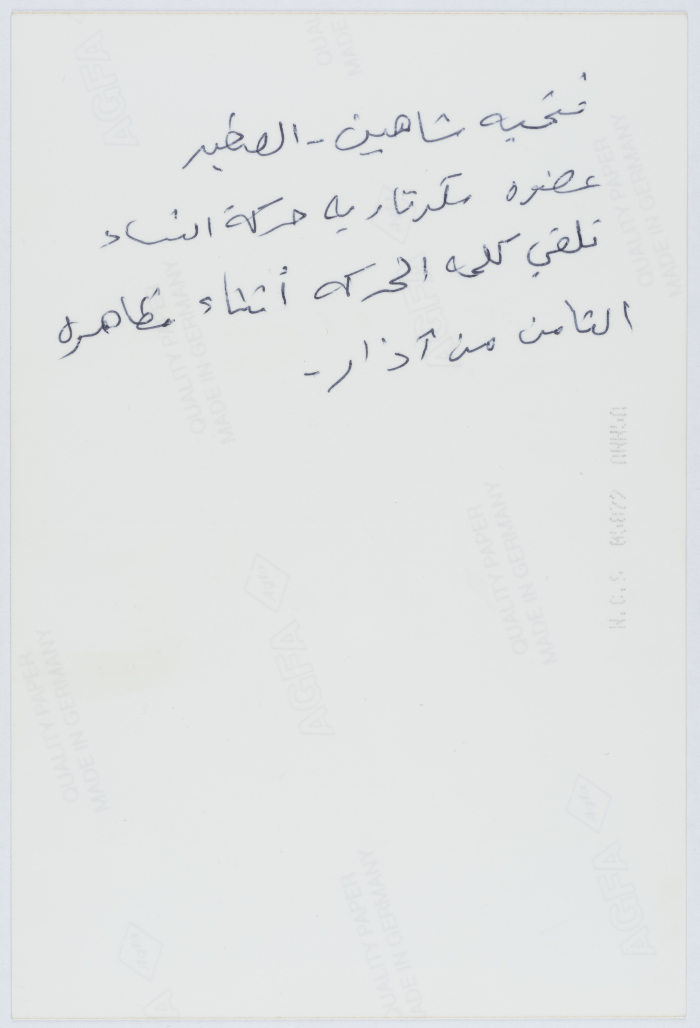 فتحيه شاهين - الصطير
عضوه سكرتاريه حركة النساء
تلقي كلمه الحركه أثناء مظاهره
الثامن من آذار -
AGFA
QUALITY PAPER
MADE IN GERMANY